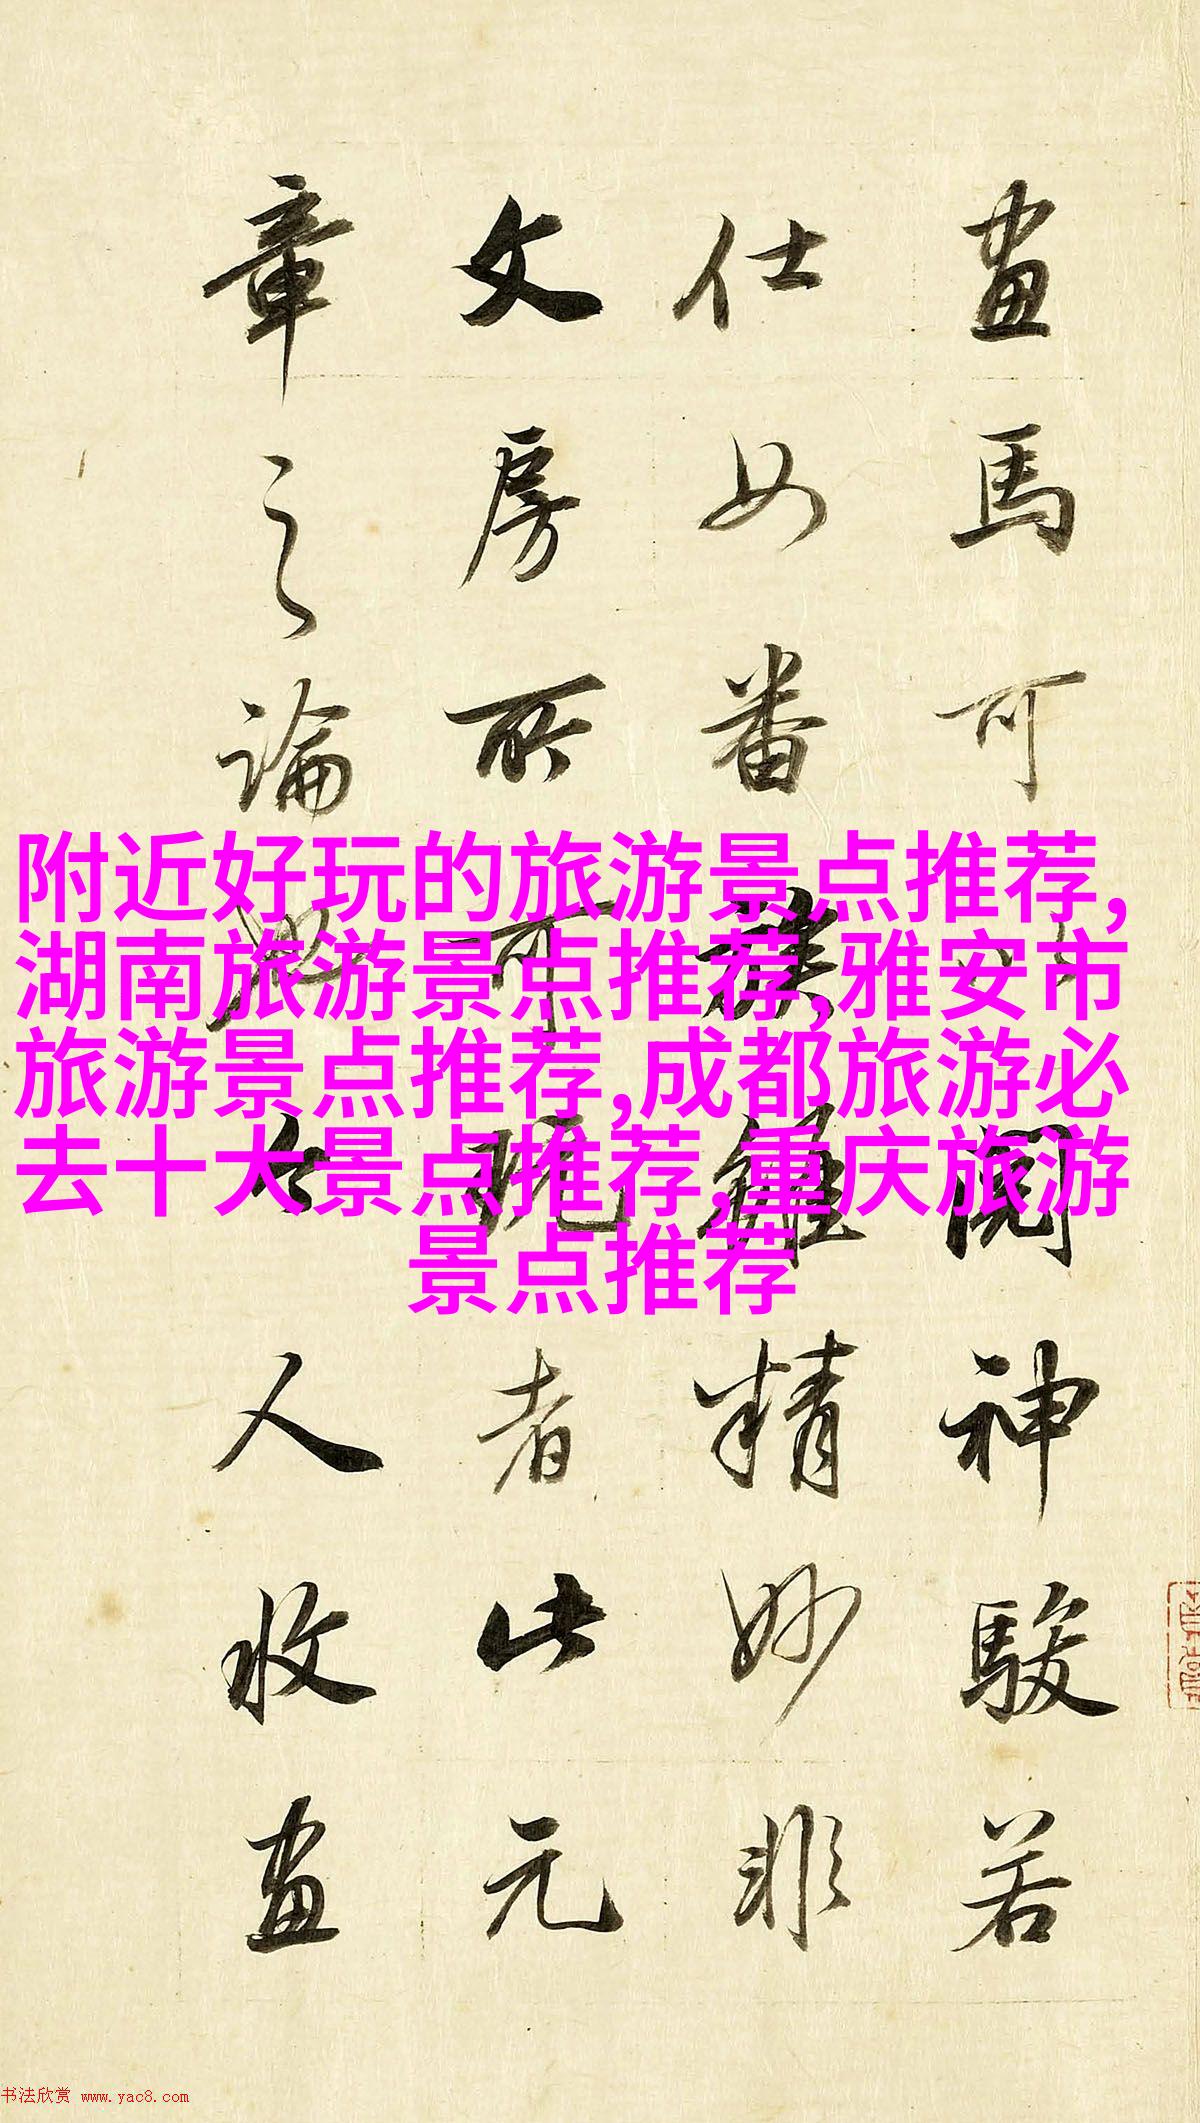 畫馬可以閱神駿若
仕女番族雖精妙非
文房所可玩者此元
章之論與今人收畫
附近好玩的旅游景点推荐,
湖南旅游景点推荐,雅安市
旅游景点推荐,成都旅游必
去十大景点推荐,重庆旅游
景点推荐
书法欣赏 www.yac8.com